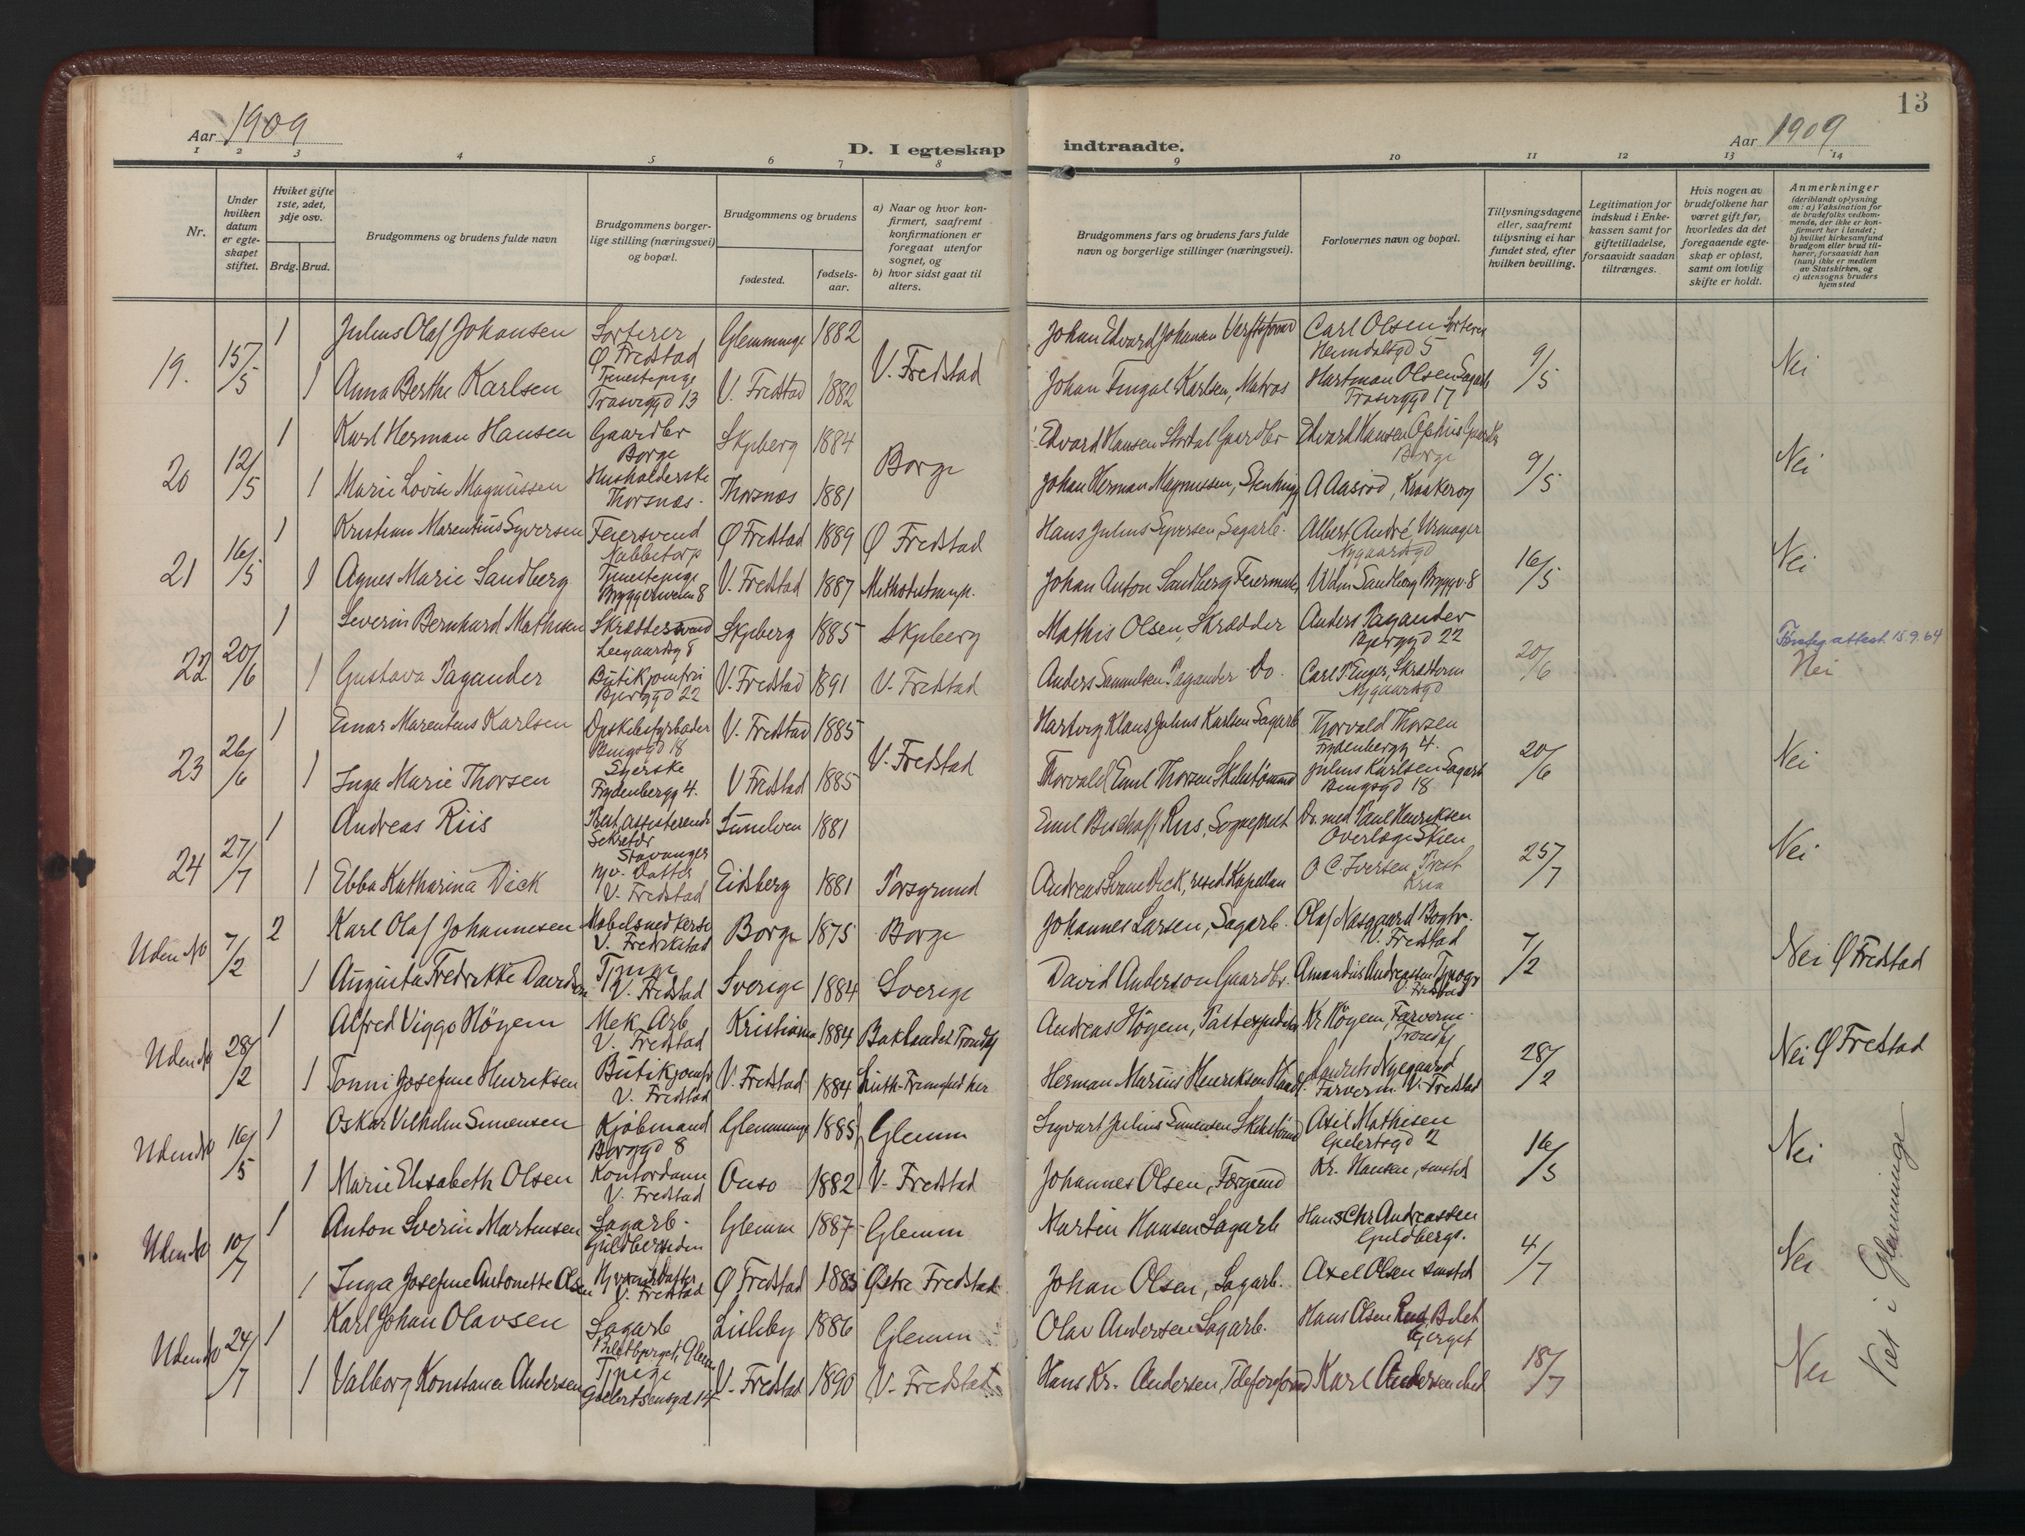 13
Aar 1909
D. I egteskap indtraadte.
Aar 1909
1 2 3 4 5 6 7 8 9 10 11 12 13 14
Nr.
Under hvilken datum er egteskapet stiftet.
Hviket gifte 1ste, 2det, 3dje osv.
Brdg. Brud.
Brudgommens og brudens fulde navn
Brudgommens borgerlige stilling (næringsvei) og bopæl.
Brudgommens og brudens
fødested.
fødselsaar.
a) Naar og hvor konfirmert, saafremt konfirmationen er foregaat utenfor sognet, og
b) hvor sidst gaat til alters.
Brudgommens fars og brudens fars fulde navn og borgerlige stillinger (næringsvei).
Forlovernes navn og bopæl.
Tillysningsdagene eller, saafremt tillysning ei har fundet sted, efter hvilken bevilling.
Legitimation for indskud i Enkekassen samt for giftetilladelse, forsaavidt saadan tiltrænges.
Hvis nogen av brudefolkene har været gift før, hvorledes da det foregaaende egteskap er opløst, samt om lovlig skifte er holdt.
Anmerkninger
(deriblandt oplysning om: a) Vaksination for de brudefolks vedkommende, der ikke er konfirmert her i landet; b) hvilket kirkesamfund brudgom eller brud tilhører, forsaavidt han (hun) ikke er medlem av Statskirken, og c) utensogns bruders hjemsted
19. 15/5 1 Julius Olaf Johansen Sorterer Ø Fredstad Glemminge 1882 V. Fredstad Johan Edvard Johansen Carl Olsen Sorterer Heimdalsgd 5 9/5 Nei
1 Anna Berthe Karlsen Tjenestepige Trosviggd 13 V. Fredstad 1882 Johan Fingal Karlsen, Matros Hartman Olsen Sagarb Trosviggd 17
20 12/5 1 Karl Herman Hansen Gaardbr Borge Skjeberg 1884 Borge Edvard Hansen Gaardbr Edvard Hansen Borge 9/5 Nei
1 Marie Lovise Magnussen Husholderske Thorsnæs. Thorsnæs 1881 Johan Herman Magnussen, A Aasrød, Kraakerøy
21 16/5 1 Kristian Marentius Syversen Feiersvend Nabbetorp Ø Fredstad 1889 Ø Fredstad Hans Julius Syversen Sagarb. Albert André Urmager Nygaardsgd 16/5 Nei
1 Agnes Marie Sandberg Tjenestepige Bryggeriveien 8 V. Fredstad 1887 Methodistmen. Johan Anton Sandberg Feiermester Wilm Sandberg Bryggv. 8
22 20/6 1 Severin Bernhard Mathisen Skræddersvend Leegaardsg 8 Skjeberg 1885 Skjeberg Mathis Olsen, Skrædder Anders Pagander Bjerggd 22 20/6 attest 15.9.64 Nei
1 Gustava Pagander Butikjomfru Bjerggd 22 V. Fredstad 1891 V. Fredstad Anders Samuelsen Pagander Do. Carl P Enger, Skrædderm Nygaardsgd
23 26/6 1 Einar Marentius Karlsen Bingsgd 18 V. Fredstad 1885 V. Fredstad Hartvig Klaus Julius Karlsen Sagarb Thorvald Thorsen Frydenbergg 4. 20/6 Nei
1 Inga Marie Thorsen Syerske Frydenbergg 4. V Fredstad 1885 Thorvald Emil Thorsen Skibstømmd Julius Karlsen Sagarb Bingsgd 18
24 27/7 1 Andreas Riis Best. assisterende Sekretær Stavanger Sunelven 1881 Emil Bischoff Riis, Sogneprest Dr. med Paul Henriksen Overlæge Skien 25/7 Nei
1 Ebba Katharina Dick Hjv. Datter V. Fredstad Eidsberg 1881 Porsgrund Andreas Dick, resid Kapellan O C. Iversen, Prest Kria
Uden No 7/2 2 Karl Olaf Johannesen Møbelsnedkersv V. Fredrikstad Borge 1875 Borge Johannes Larsen, Sagarb. Olaf Nasgaard Bogtr. V. Fredstad 7/2 Nei Ø Fredstad
1 Augusta Fredrikke Davidsen Tj.pige V. Fredstad Sverige 1884 Sverige David Anderson Gaardbr. Amandus Andreassen Typogr V. Fredstad
Uden No 28/2 1 Alfred Viggo Höyem Mek. Arb V. Fredstad Kristiania 1884 Baklandet Trondhj Andreas Höyem, Postexpeditør Kr Höyem, Farverm. Trondhj 28/2 Nei Ø Fredstad
1 Tonni Josefine Henriksen Butikjomfr V. Fredstad V. Fredstad 1884 Luth. Frimenighed her Herman Marius Henriksen Laurits Nygaard Farverm V. Fredstad
Uden No 16/5 1 Oskar Vilhelm Simensen Kjøbmand Borggd 8 Glemminge 1885 Glemm Sigvart Julius Simensen Skibstømmd Axel Mathisen Gelertsgd 2 16/5 Nei
1 Marie Elisabeth Olsen Kontordame V. Fredstad Onsø 1882 V. Fredstad Johannes Olsen, Færgemd Kr. Hansen, smsted
Uden No 10/7 1 Anton Sverin Martinsen Sagarb. Guldbergsiden Glemm 1887 Glemm Martin Hansen Sagarb Hans Chr Andreassen Guldbergs. 4/7 Nei
1 Inga Josefine Antonette Olsen Hjv. Datter V. Fredstad Ø Fredstad 1885 Østre Fredstad Johan Olsen, Sagarb. Axel Olsen smsted
Uden No 24/7 1 Karl Johan Olavsen Sagarb Biltberget, Glem Lisleby 1886 Glemm Olav Andersen Sagarb. Hans Olsen Rud, Biltberget 18/7 Nei
1 Valborg Konstance Andersen Tj.pige Gelertsensgd 14 V. Fredstad 1890 V. Fredstad Hans Kr. Andersen, Karl Andersen
Viet i Glemminge